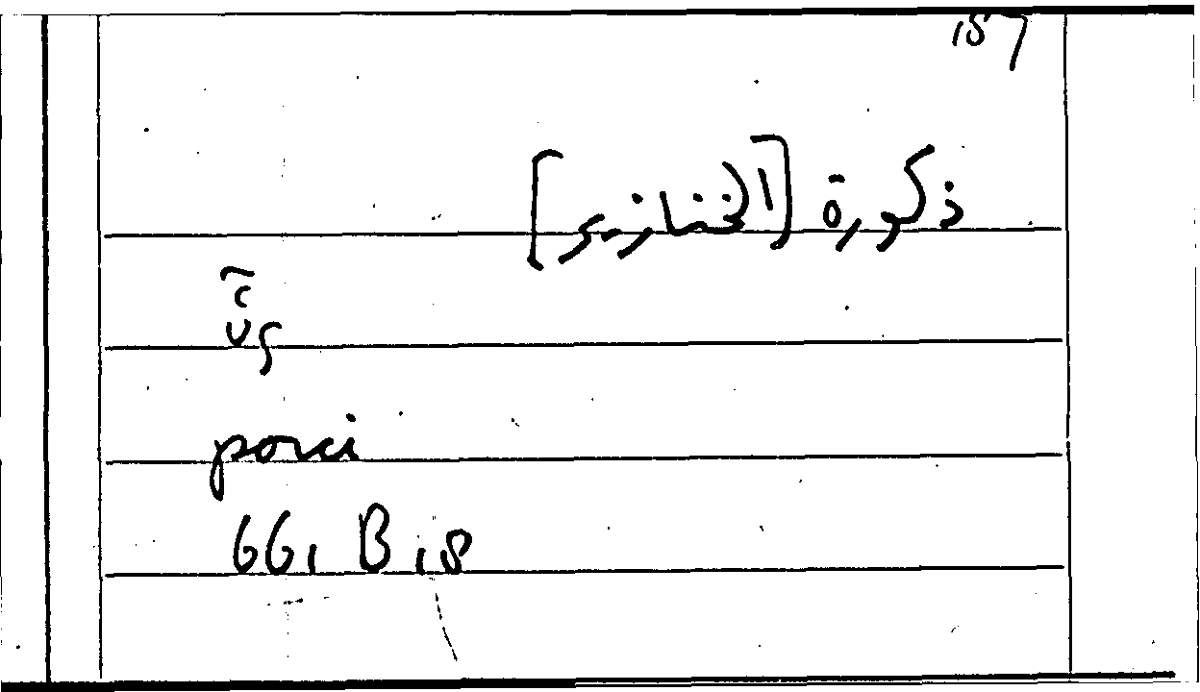 157
ذكورة [الخنازير]
ὗς
porci
661 B 18